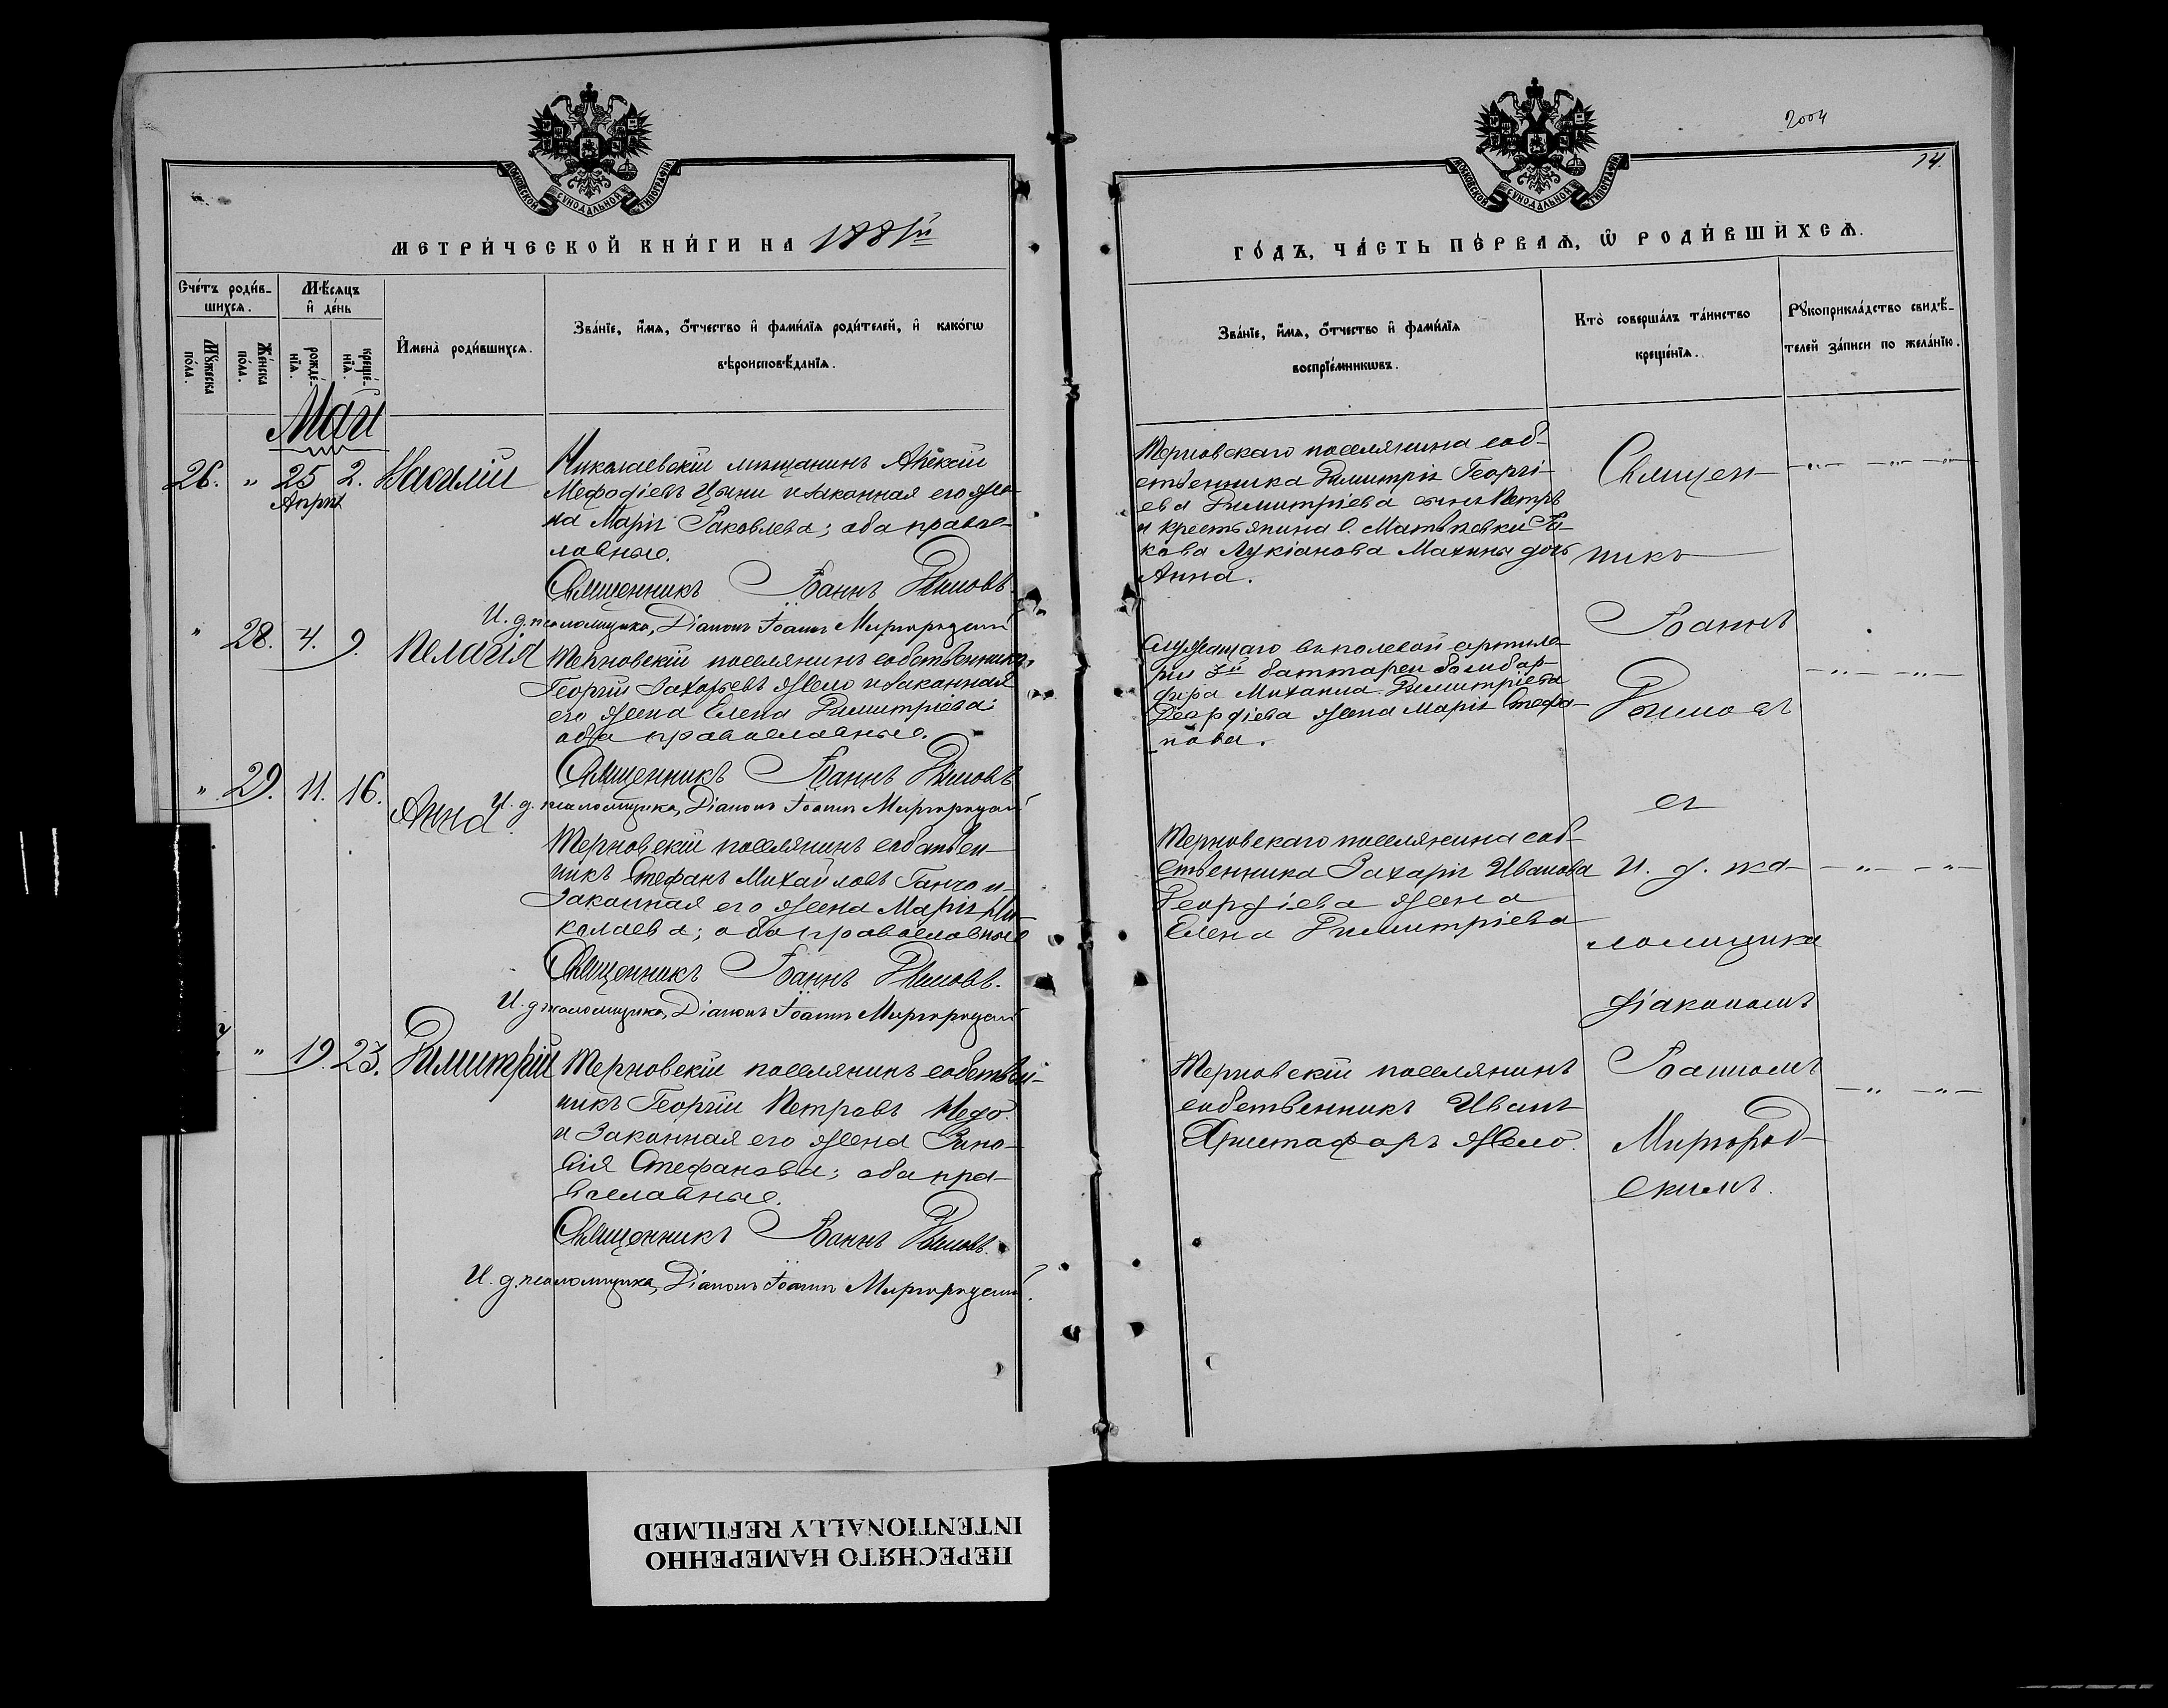 МОСКОВСКОЙ СѴНОДАЛЬНОЙ ТИПОГРАФІИ
МЕТРИ́ЧЕСКОЙ КНИ́ГИ НА 1881й
Сче́тъ роди́в-
шихсѧ.
Мѣ́сяцъ
и҆ де́нь
Мꙋ́жеска
по́ла.
Же́нска
по́ла.
рожде́-
нїѧ.
креще́-
нїѧ.
И҆мена̀ роди́вшихсѧ.
Зва́нїе, и҆́мѧ, ѻ҆́тчество и҆ фами́лїѧ роди́телей, и҆ како́гѡ
вѣроисповѣ́данїѧ.
Май
26. " 25 2. Василій
Април
Николаевскій мѣщанинъ Алексій
Мефодіевъ Цыни и законная его же-
на Марія Яковлева; оба право-
славные.
Священникъ Іоаннъ Димовъ.
И. д. псаломщика, Діаконъ Іоаннъ Миргородскій
" 28. 4. 9. Пелагія
Терновскій поселянинъ собственникъ
Георгій Захарьевъ Жело и законная
его жена Елена Димитріева;
оба православные.
Священникъ Іоаннъ Димовъ
И. д. псаломщика, Діаконъ Іоаннъ Миргородскій
" 29. 11. 16. Анна.
Терновскій поселянинъ собствен-
никъ Стефанъ Михайловъ Ганчо и
законная его жена Марія Ни-
колаева; оба православные
Священникъ Іоаннъ Димовъ.
И. д. псаломщика, Діаконъ Іоаннъ Миргородскій
" 19. 23. Димитрій
Терновскій поселянинъ собствен-
никъ Георгій Петровъ Недо
и законная его жена Зино-
вія Стефанова; оба пра-
вославные.
Священникъ Іоаннъ Димовъ.
И. д. псаломщика, Діаконъ Іоаннъ Миргородскій.
2004
14.
МОСКОВСКОЙ СѴНОДАЛЬНОЙ ТИПОГРАФІИ
ГО́ДЪ, ЧА́СТЬ ПЕ́РВАѦ, Ѡ҆ РОДИ́ВШИХСѦ.
Зва́нїе, и҆́мѧ, ѻ҆́тчество и҆ фами́лїѧ
воспрїе́мникѡвъ.
Кто̀ соверша́лъ та́инство
креще́нїѧ.
Рꙋкоприкла́дство свидѣ́-
телей за́писи по жела́нїю.
Терновскаго поселянина соб-
ственника Димитрія Георгі-
ева Димитріева сынъ Петръ
и крестьянина с. Матвѣевки Іа-
кова Лукіанова Махины дочь
Анна.
Служащаго въ полевой артиле-
ріи 3й баттареи бомбар-
дира Михаила Димитріева
Георгіева жена Марія Стефа-
нова.
Терновскаго поселянина соб-
ственника Захарія Иванова
Георгіева жена
Елена Димитріева
Терновскій поселянинъ
собственникъ Иванъ
Христофоръ Жело.
Священ-
никъ
Іоаннъ
Димовъ
съ
И. д. пса-
ломщика
діакономъ
Іоанномъ
Миргород-
скимъ.
ПЕРЕСНЯТО НАМЕРЕННО
INTENTIONALLY REFILMED